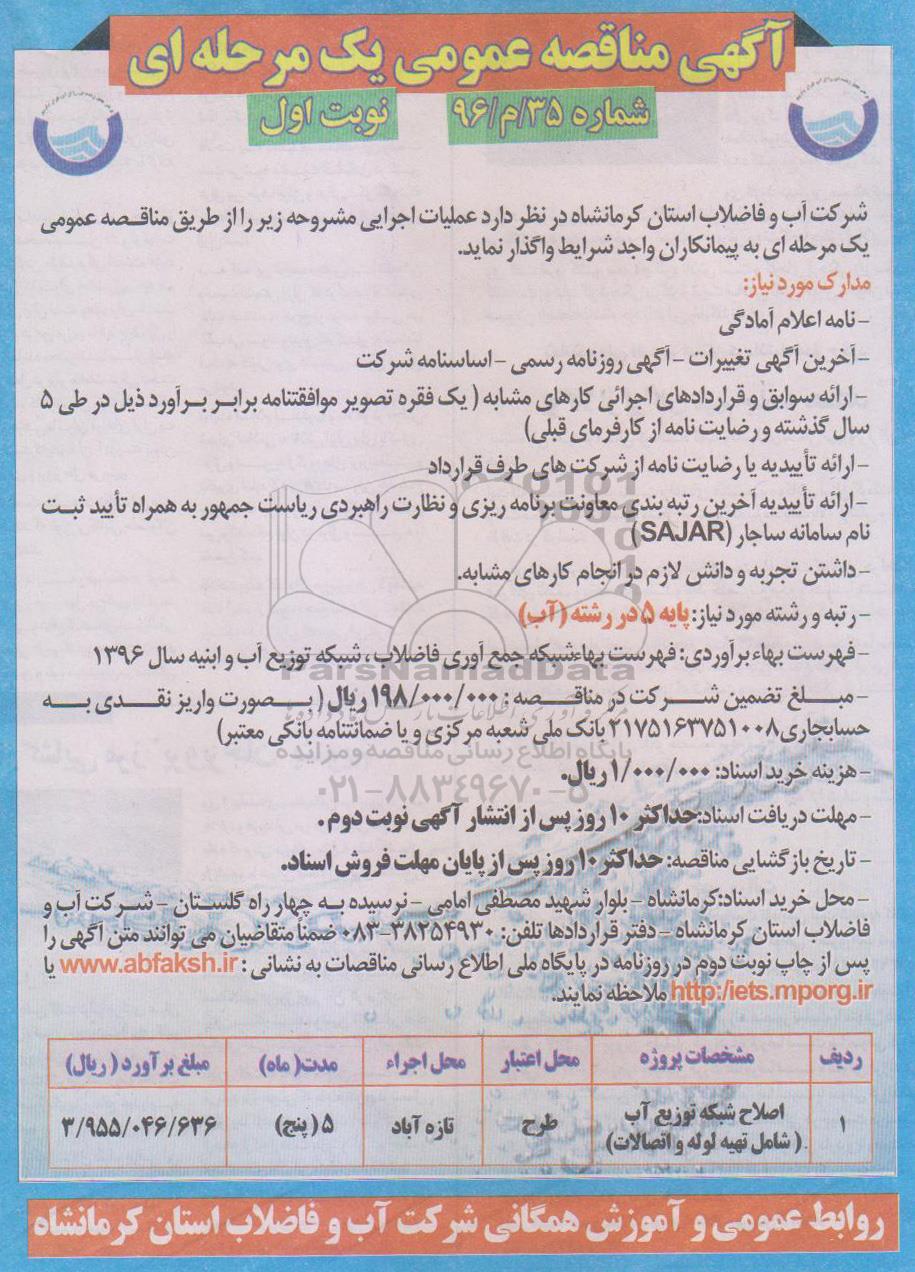 آگهی مناقصه عمومی یک مرحله ای
شماره ۳۵/م/۹۶ نوبت اول
شرکت آب و فاضلاب استان کرمانشاه در نظر دارد عملیات اجرایی مشروحه زیر را از طریق مناقصه عمومی
یک مرحله ای به پیمانکاران واجد شرایط واگذار نماید.
مدارک مورد نیاز:
- نامه اعلام آمادگی
- آخرین آگهی تغییرات - آگهی روزنامه رسمی - اساسنامه شرکت
- ارائه سوابق و قراردادهای اجرائی کارهای مشابه ( یک فقره تصویر موافقتنامه برابر برآورد ذیل در طی ۵
سال گذشته و رضایت نامه از کارفرمای قبلی)
- ارائه تأییدیه یا رضایت نامه از شرکت های طرف قرارداد
- ارائه تأییدیه آخرین رتبه بندی معاونت برنامه ریزی و نظارت راهبردی ریاست جمهور به همراه تأیید ثبت
نام سامانه ساجار (SAJAR)
- داشتن تجربه و دانش لازم در انجام کارهای مشابه.
- رتبه و رشته مورد نیاز: پایه ۵ در رشته (آب)
- فهرست بهاء برآوردی: فهرست بهاءشبکه جمع آوری فاضلاب، شبکه توزیع آب و ابنیه سال ۱۳۹۶
ParsNamadData
- مبلغ تضمین شرکت در مناقصه : ۱۹۸/۰۰۰/۰۰۰ ریال ( بصورت واریز نقدی به
حسابجاری۲۱۷۵۱۶۳۷۵۱۰۰۸ بانک ملی شعبه مرکزی و یا ضمانتنامه بانکی معتبر)
پایگاه اطلاع رسانی مناقصه و مزایده
- هزینه خرید اسناد: ۱/۰۰۰/۰۰۰ ریال.
۰۲۱-۸۸۳۴۹۶۷۰-۵
- مهلت دریافت اسناد:حداکثر ۱۰ روز پس از انتشار آگهی نوبت دوم .
- تاریخ بازگشایی مناقصه: حداکثر۱۰ روز پس از پایان مهلت فروش اسناد.
- محل خرید اسناد:کرمانشاه - بلوار شهید مصطفی امامی - نرسیده به چهار راه گلستان - شرکت آب و
فاضلاب استان کرمانشاه - دفتر قراردادها تلفن: ۳۸۲۵۴۹۳۰-۰۸۳ ضمناً متقاضیان می توانند متن آگهی را
پس از چاپ نوبت دوم در روزنامه در پایگاه ملی اطلاع رسانی مناقصات به نشانی : www.abfaksh.ir یا
http:/iets.mporg.ir ملاحظه نمایند.
ردیف مشخصات پروژه محل اعتبار محل اجراء مدت( ماه) مبلغ برآورد ( ریال)
۱ اصلاح شبکه توزیع آب ( شامل تهیه لوله و اتصالات) طرح تازه آباد ۵ ( پنج) ۳/۹۵۵/۰۴۶/۶۳۶
روابط عمومی و آموزش همگانی شرکت آب و فاضلاب استان کرمانشاه